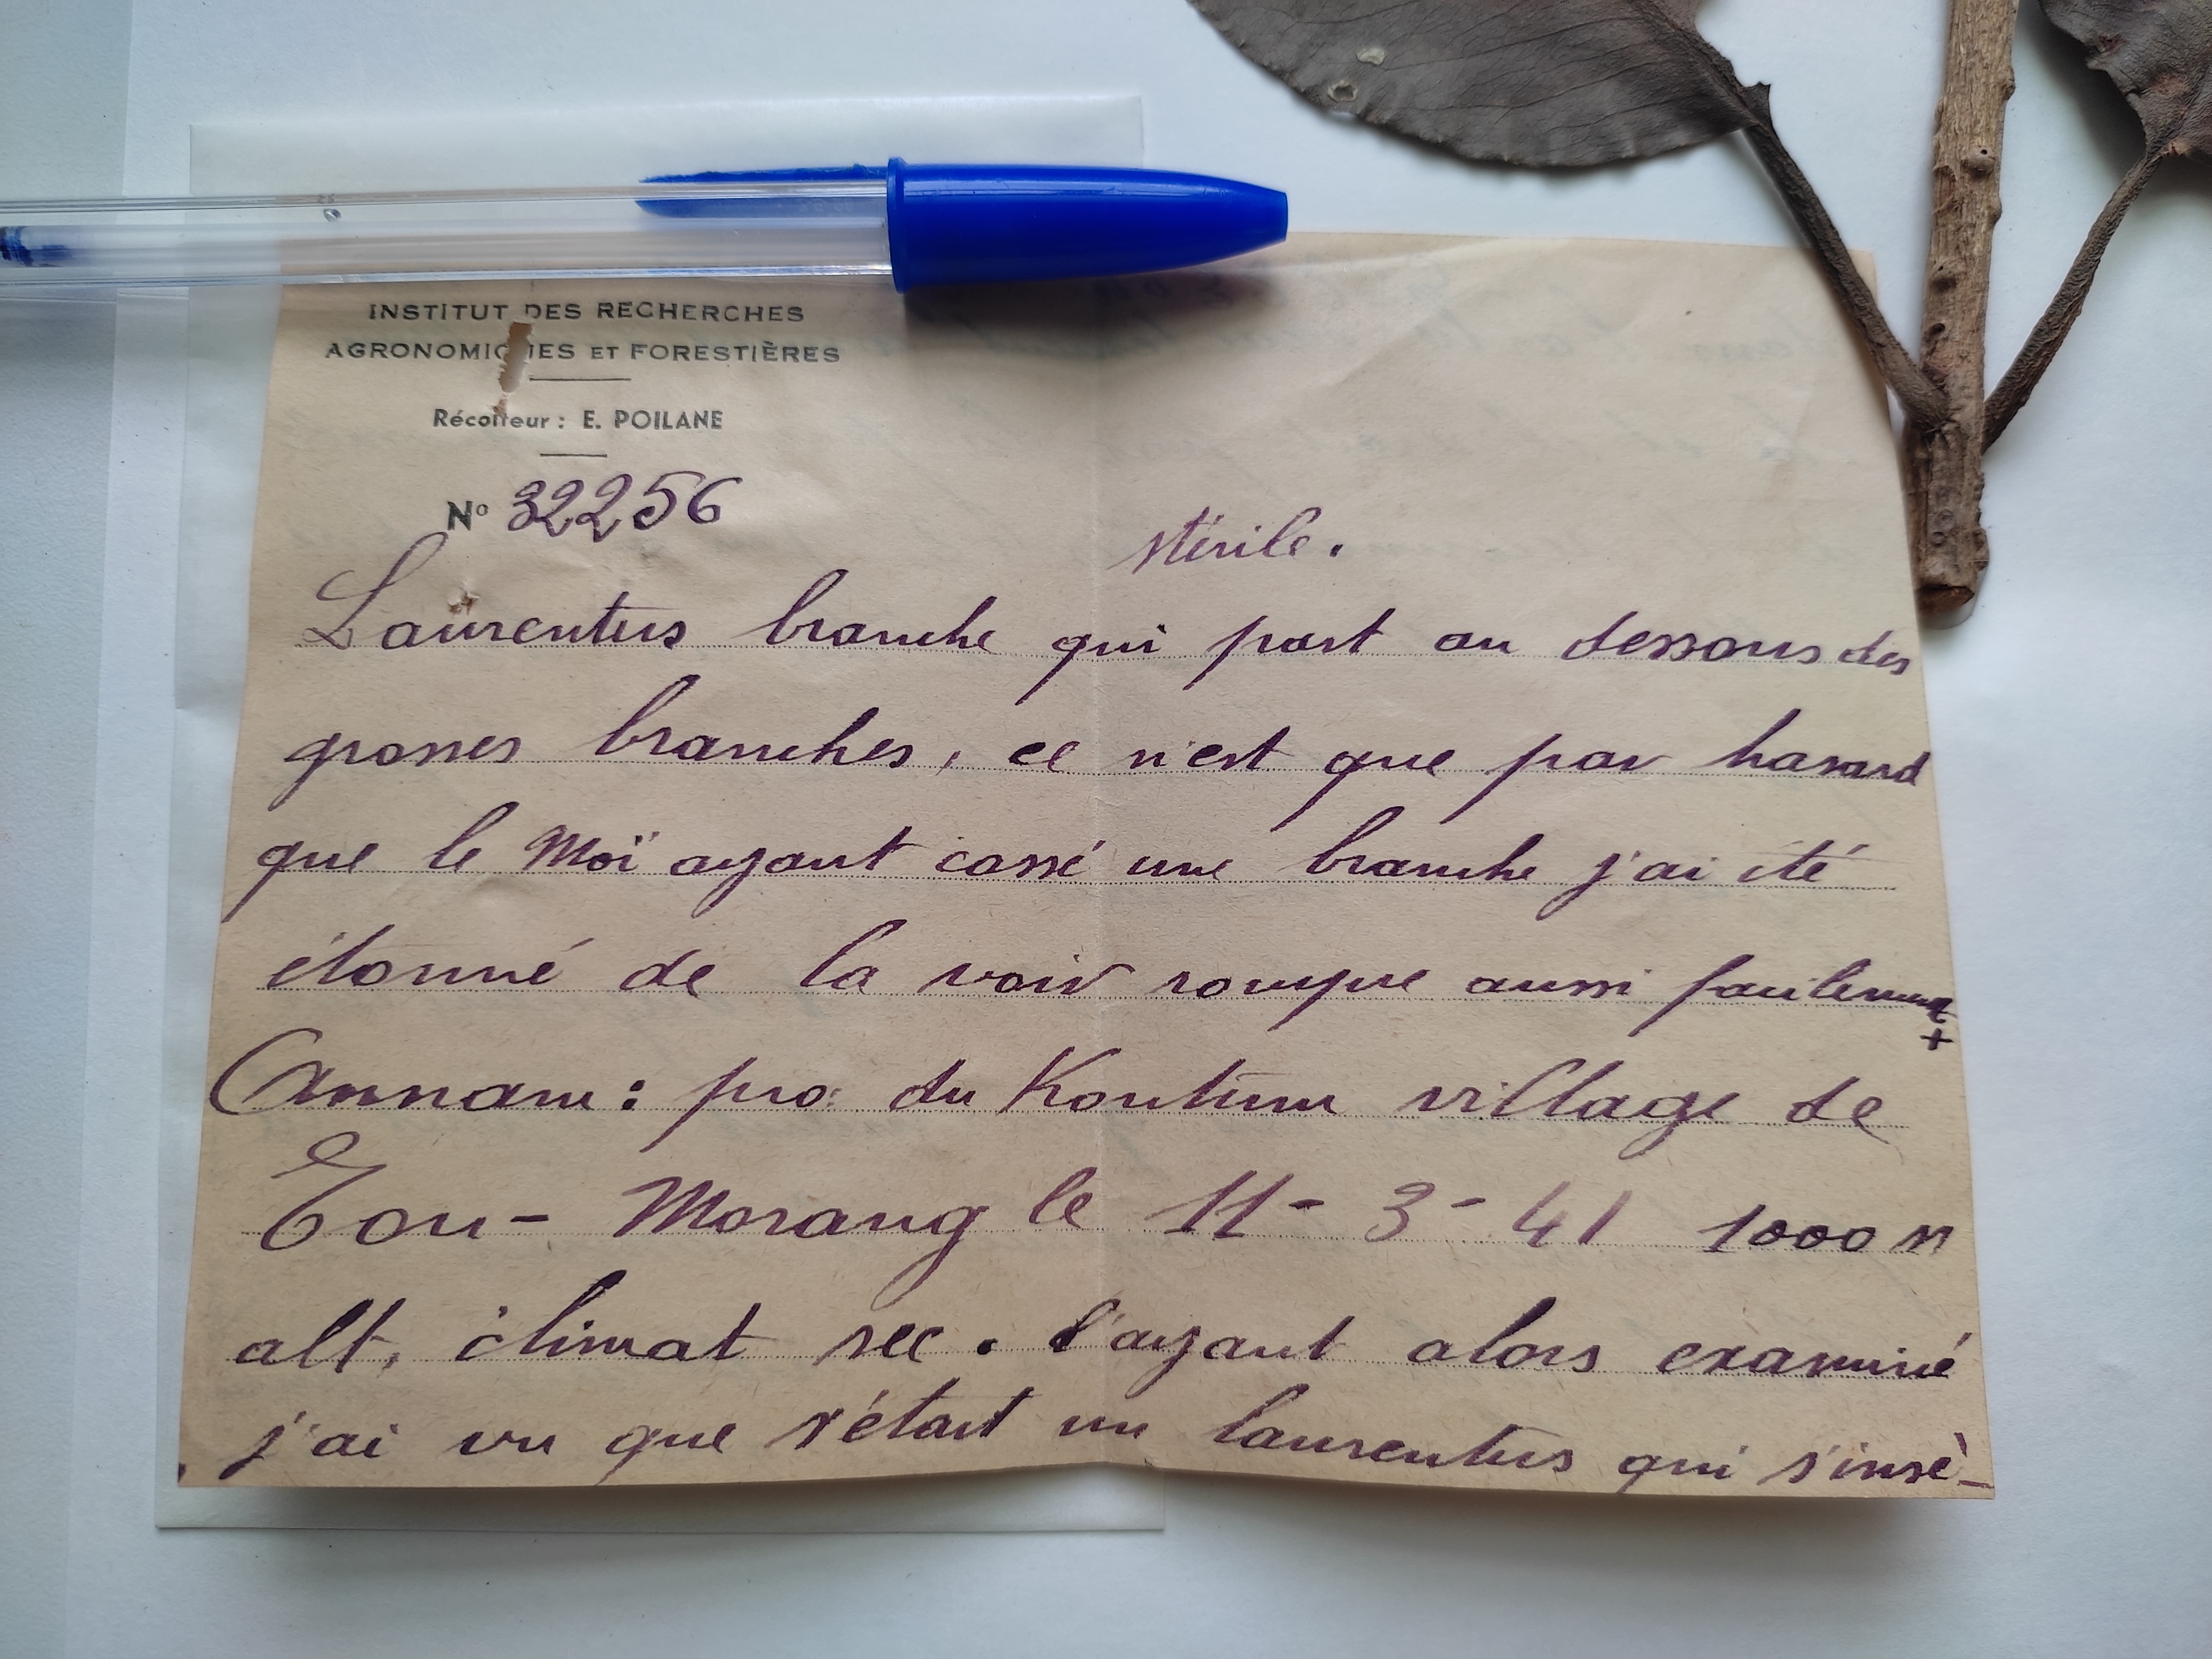 INSTITUT DES RECHERCHES
AGRONOMIQUES ET FORESTIÈRES
Récolteur : E. POILANE
Nº 32256
stérile.
Laurentus branche qui part au dessous des
grosses branches, ce n'est que par hasard
que le Moï ayant cassé une branche j'ai été
étonné de la voir rompre aussi facilement
+
Annam : pro. du Kontum village de
Tou - Morang le 11 - 3 - 41 1000 m
alt, climat sec. l'ayant alors examiné
j'ai vu que s'étart un laurentus qui s'insè-